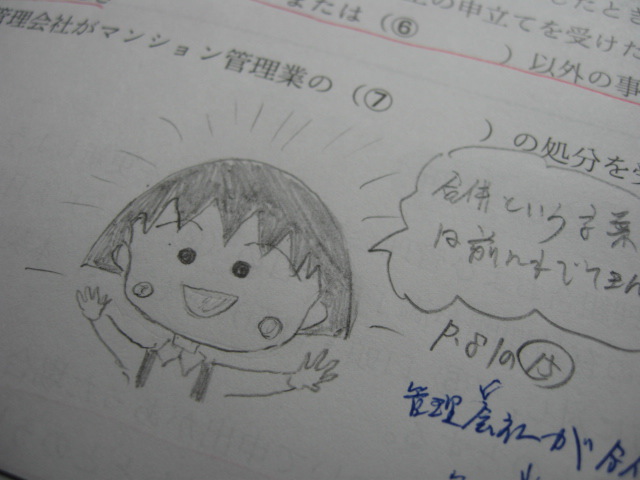 または（⑥　　　）以外の事
の申立てを受けた
したとき
管理会社がマンション管理業の（⑦　　　）の処分を
合併という言葉
は前にもでてきた
P.81の
管理会社が